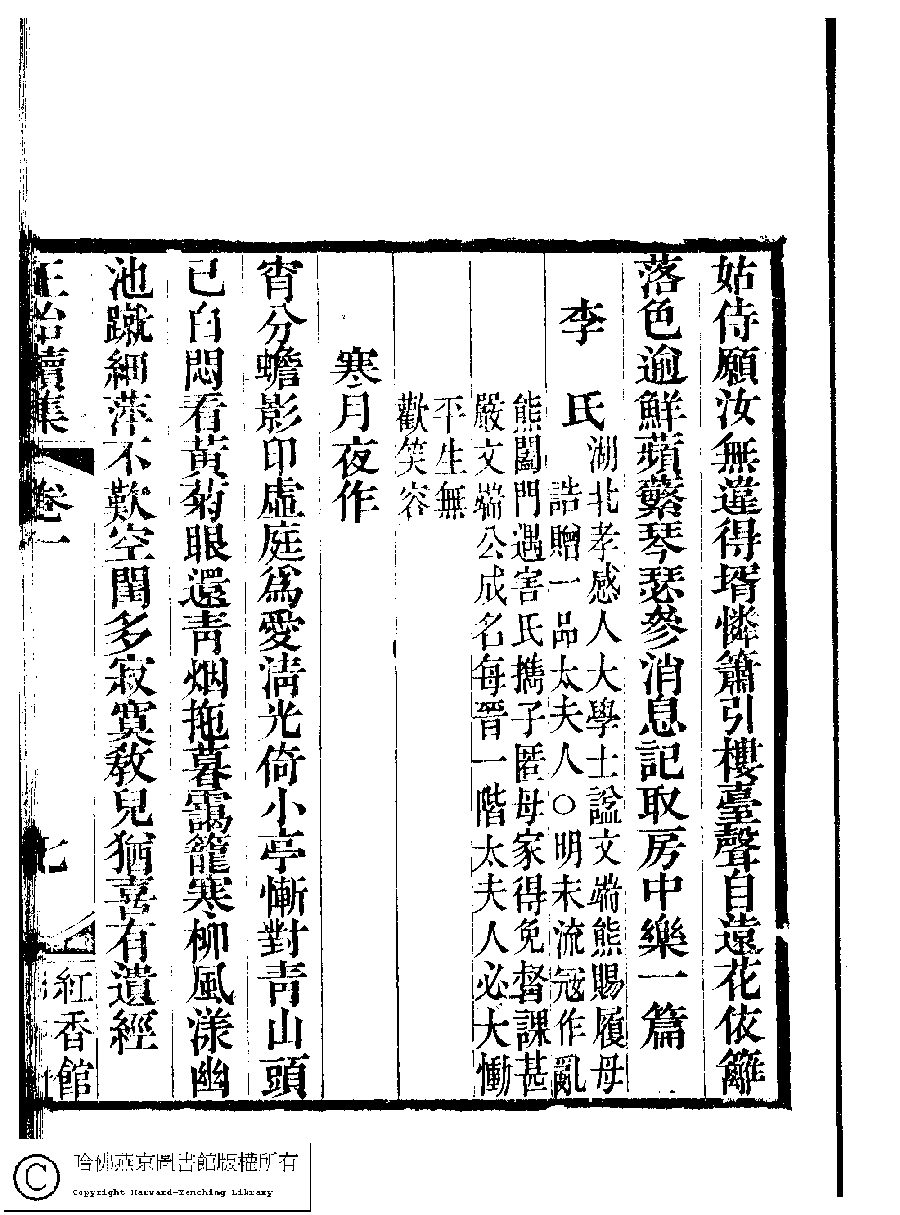 姑侍願汝無違得壻憐簫引樓臺聲自遠花依籬
落色逾鮮蘋蘩琴瑟參消息記取房中樂一篇
李氏
湖北孝感人大學士諡文端熊賜履母
誥贈一品太夫人○明末流寇作亂
熊闔門遇害氏擕子匿母家得免督課甚
嚴文端公成名每晉一階太夫人必大慟
平生無
歡笑容
寒月夜作
宵分蟾影印虛庭爲愛淸光倚小亭慚對靑山頭
已白悶看黃菊眼還靑烟拖暮靄籠寒柳風漾幽
池蹴細萍不歎空閨多寂寞敎兒猶喜有遺經
正始續集 卷一 七 紅香館
哈佛燕京圖書館版權所有
Copyright Harvard-Yenching Library